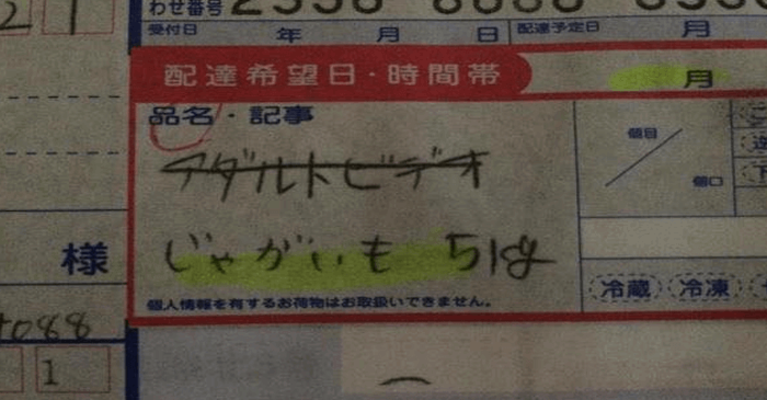 わせ番号
受付日 年 月 日 配達予定日 月
配達希望日・時間帯 月
品名・記事
アダルトビデオ
個目
個口
じゃがいも 51kg
様
個人情報を有するお荷物はお取扱いできません。
冷蔵 冷凍
1